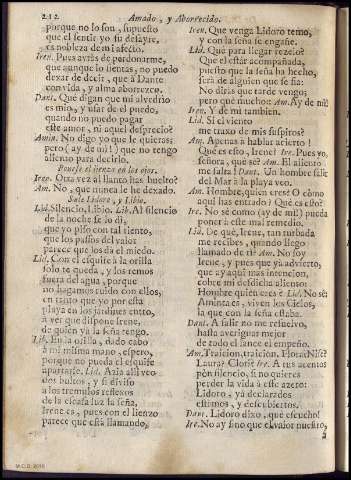 212 Amado, y Aborrecido.
porque no lo son, supuesto
que el sentir yo su desayre,
es nobleza de mi afecto.
Iren. Pues avràs de perdonarme,
que aunque lo sientas, no puedo
dexar de decir, que à Dante
con vida, y alma aborrezco.
Dant. Què digan que mi alvedrio
es mio, y usar de èl puedo,
quando no puedo pagar
este amor, ni aquel desprecio?
Amin. No digo yo que le quieras;
pero (ay de mi!) que no tengo
aliento para decirlo.
Ponese el lienzo en los ojos.
Iren. Otra vez al llanto has buelto?
Am. No, que nunca le he dexado.
Sale Lidoro, y Libio.
Lid. Silencio, Libio. Lib. Al silencio
de la noche se lo dì,
que yo piso con tal tiento,
que los passos del valor
parece que los dà el miedo.
Lid. Con el esquife à la orilla
solo te queda, y los remos
fuera del agua, porque
no hagamos ruido con ellos,
en tanto que yo por esta
playa en los jardines entro,
à ver que dispone Irene,
de quien ya la seña tengo.
Lib. En la orilla, dado cabo
à mi misma mano, espero,
porque no pueda el esquife
apartarse. Lid. Azia alli veo
dos bultos, y si diviso
à los tremulos reflexos
de la escasa luz la seña,
Irene es, pues con el lienzo
parece que està llamando,
Iren. Que venga Lidoro temo,
y con la seña se engañe.
Lid. Què para llegar rezelo?
Què el estàr acompañada,
puesto que la seña ha hecho,
serà de alguien que se fia:
No diràs que tarde vengo;
pero què mucho: Am. Ay de mi!
Iren. Y de mi tambien.
Lid. Si el viento
me traxo de mis suspiros?
Am. Apenas à hablar acierto!
Què es esto, Irene? Ire. Pues yo,
señora, què sè? Am. El aliento
me falta! Dant. Un hombre salir
del Mar à la playa veo.
Am. Hombre, quien eres? O còmo
aqui has entrado? Què es esto?
Ire. No sè como (ay de mi!) pueda
poner à este mal remedio.
Lid. De què, Irene, tan turbada
me recibes, quando llego
llamado de ti? Am. No soy
Irene, y pues que ya advierto,
que ay aqui mas intencion,
cobre mi desdicha aliento:
Hombre quien eres? Lid. No sè:
Aminta es, viven los Cielos,
la que con la seña estaba.
Dant. A salir no me resuelvo,
hasta averiguar mejor
de todo el lance el empeño.
Am. Traicion, traicion. Flora? Nise?
Laura? Cloris? Ire. A tus acentos
pon silencio, si no quieres
perder la vida à este azero:
Lidoro, ya declarados
estamos, y descubiertos.
Dant. Lidoro dixo, què escucho!
Ire. No ay sino que el valor nuestro,